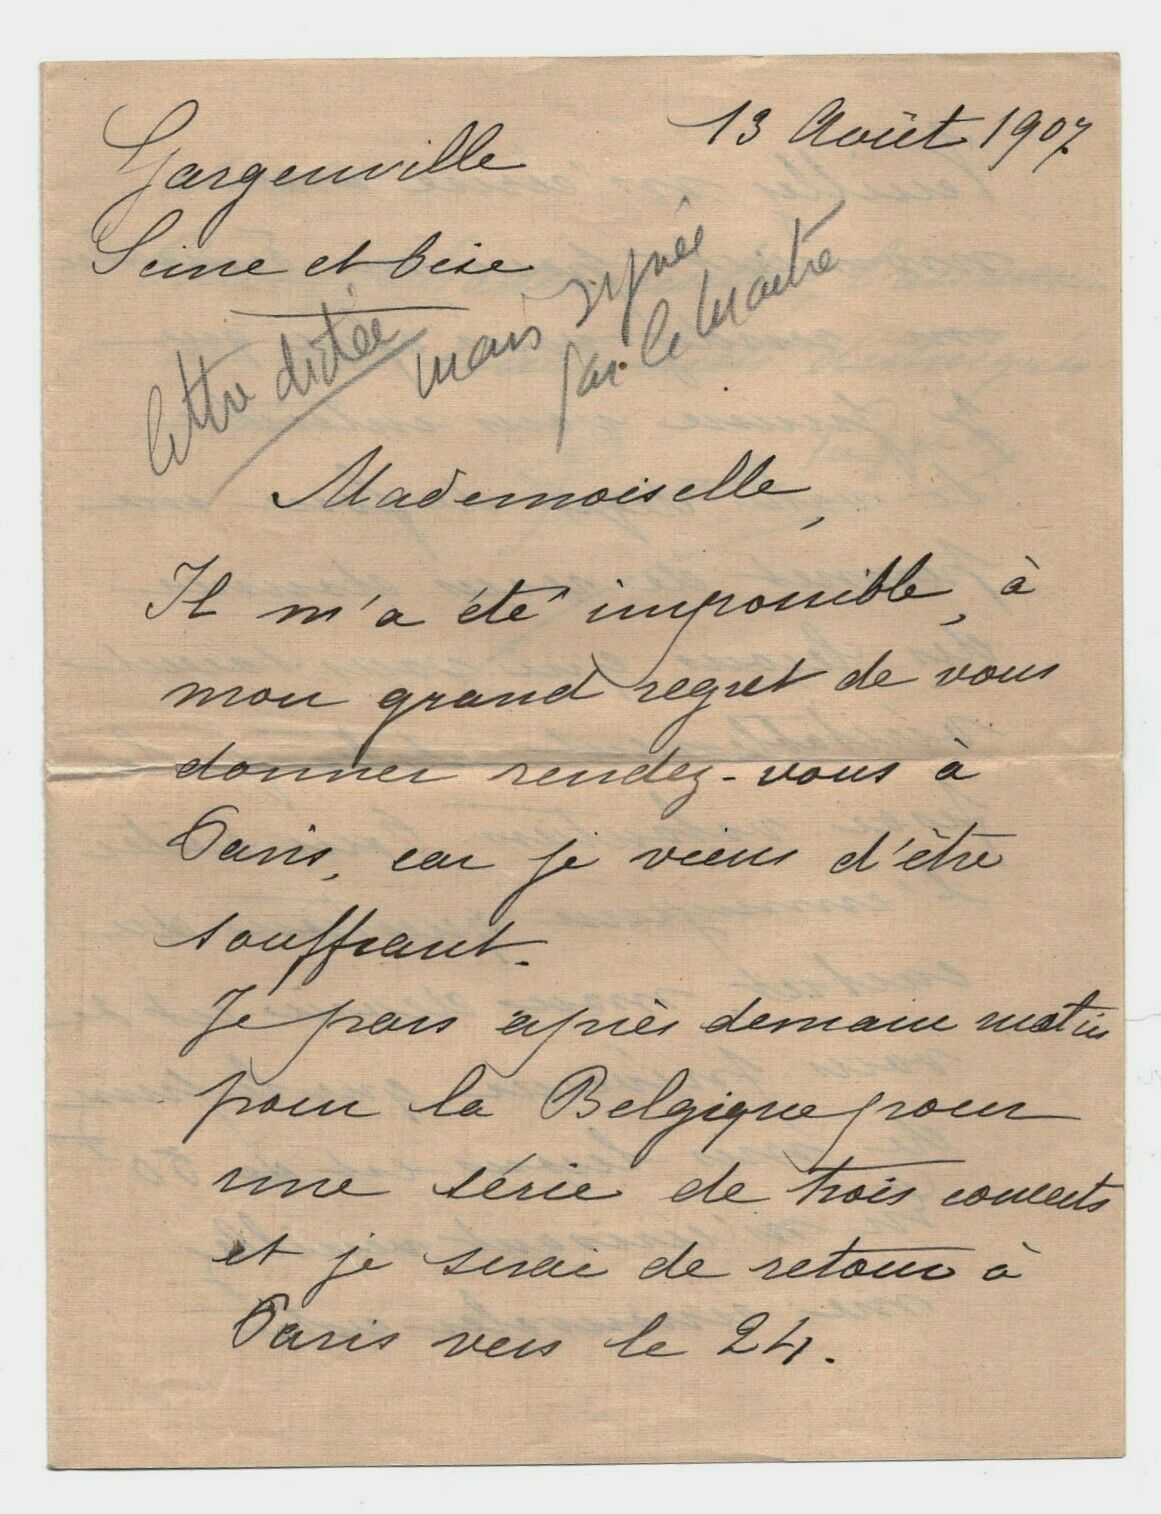 13 Août 1907
Gargenville
Seine et Oise
lettre dictée
mais signée
par le Maitre
Mademoiselle,
Il m'a été impossible, à
mon grand regret de vous
donner rendez-vous à
Paris, car je viens d'être
souffrant.
Je pars après demain matin
pour la Belgique pour
une série de trois concerts
et je serai de retour à
Paris vers le 24.